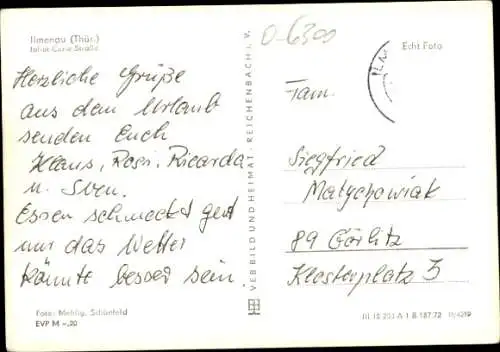 Ilmenau (Thür.)
Joliot-Curie-Straße
Herzliche Grüße
aus dem Urlaub
senden Euch
Klaus, Rosi, Ricarda
u. Sven.
Essen schmeckt gut
nur das Wetter
könnte besser sein.
Foto: Mehlig, Schönfeld
EVP M -,20
VEB BILD UND HEIMAT · REICHENBACH I. V.
0-6300
Echt Foto
Fam.
Siegfried
Matychowiak
89 Görlitz
Klosterplatz 5
III 18 203 A 1 B 187/72